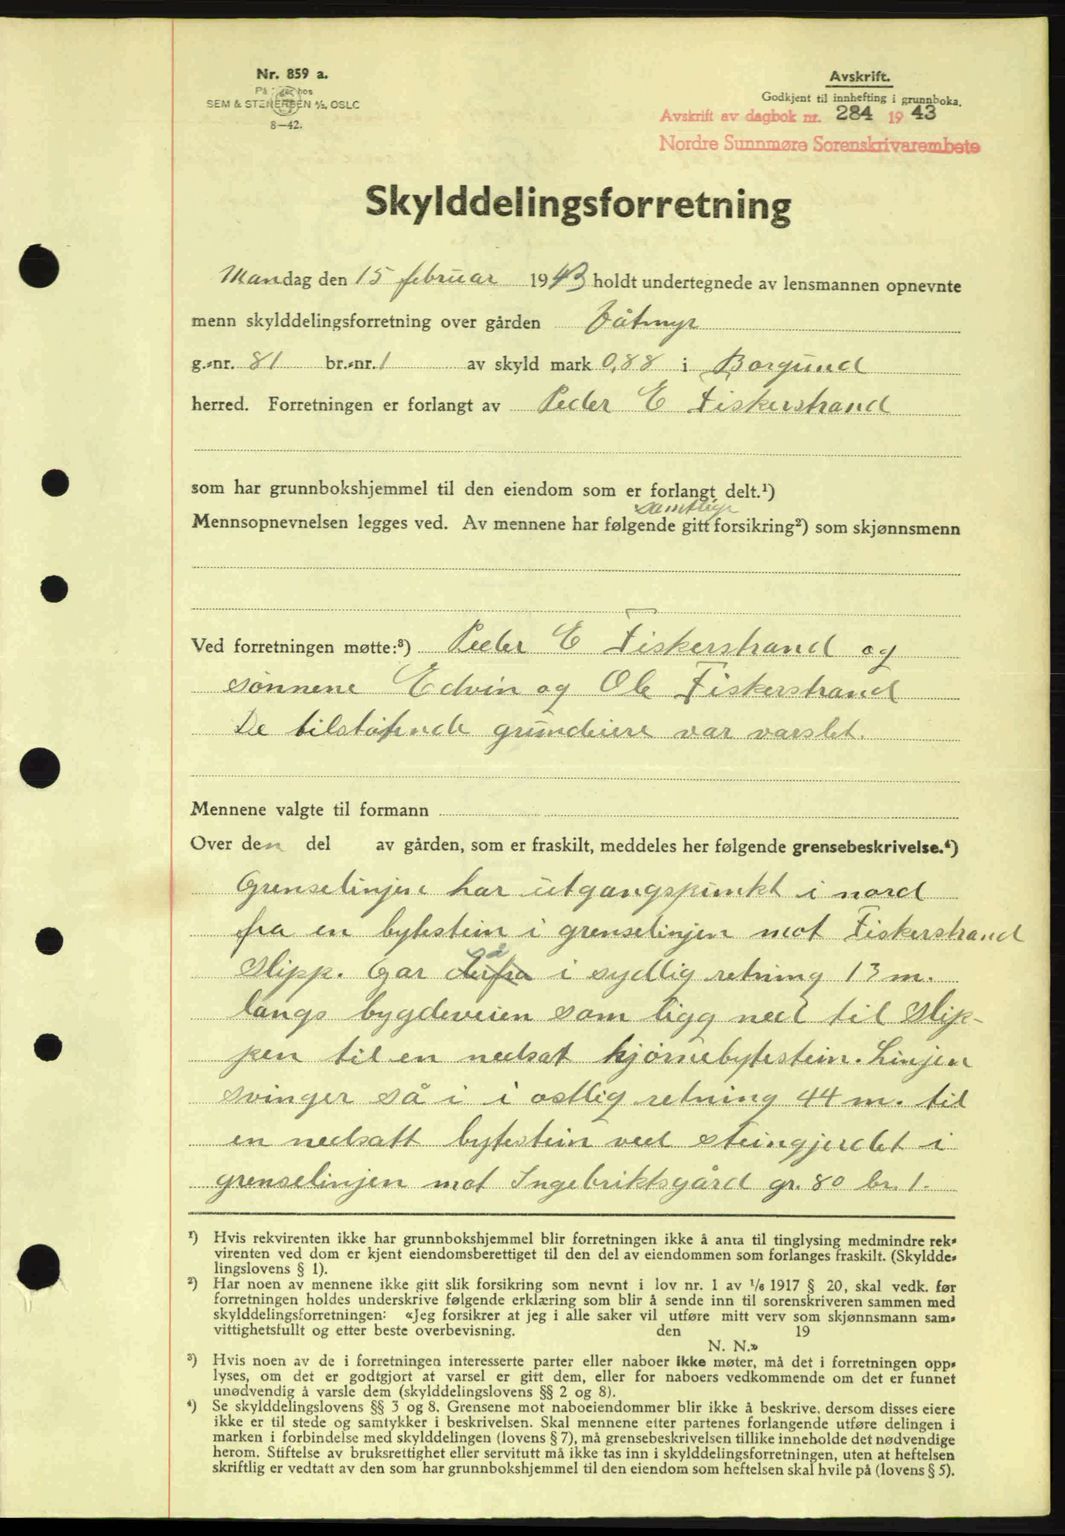 Nr. 859 a.
På lager hos
SEM & STENERSEN A/S, OSLO
8—42.
Avskrift.
Godkjent til innhefting i grunnboka.
Avskrift av dagbok nr. 284 1943
Nordre Sunnmøre Sorenskrivarembete
Skylddelingsforretning
Mandag den 15 februar 1943 holdt undertegnede av lensmannen opnevnte
menn skylddelingsforretning over gården Våtmyr
g.-nr. 81 br.-nr. 1 av skyld mark 0,88 i Borgund
herred. Forretningen er forlangt av Peder E Fiskerstrand
som har grunnbokshjemmel til den eiendom som er forlangt delt.¹)
samtlige
Mennsopnevnelsen legges ved. Av mennene har følgende gitt forsikring²) som skjønnsmenn
Ved forretningen møtte:³) Peder E Fiskerstrand og
sønnene Edvin og Ole Fiskerstrand
De tilstøtende grundeiere var varslet.
Mennene valgte til formann
Over den del av gården, som er fraskilt, meddeles her følgende grensebeskrivelse.⁴)
Grenselinjen har utgangspunkt i nord
fra en bytestein i grenselinjen mot Fiskerstrand
Slipp. Går i sydlig retning 13 m.
langs bygdeveien som ligg ned til Slip-
pen til en nedsat hjørnebytestein. Linjen
svinger så i i østlig retning 44 m. til
en nedsatt bytestein ved steingjerdet i
grenselinjen mot Ingebriktsgård gr. 80 br. 1.
¹) Hvis rekvirenten ikke har grunnbokshjemmel blir forretningen ikke å anta til tinglysing medmindre rek-
virenten ved dom er kjent eiendomsberettiget til den del av eiendommen som forlanges fraskilt. (Skyldde-
lingslovens § 1).
²) Har noen av mennene ikke gitt slik forsikring som nevnt i lov nr. 1 av 1/6 1917 § 20, skal vedk. før
forretningen holdes underskrive følgende erklæring som blir å sende inn til sorenskriveren sammen med
skylddelingsforretningen: «Jeg forsikrer at jeg i alle saker vil utføre mitt verv som skjønnsmann sam-
vittighetsfullt og etter beste overbevisning. den 19
N. N.»
³) Hvis noen av de i forretningen interesserte parter eller naboer ikke møter, må det i forretningen opp-
lyses, om det er godtgjort at varsel er gitt dem, eller for naboers vedkommende om det er funnet
unødvendig å varsle dem (skylddelingslovens §§ 2 og 8).
⁴) Se skylddelingslovens §§ 3 og 8. Grensene mot naboeiendommer blir ikke å beskrive, dersom disses eiere
ikke er til stede og samtykker i beskrivelsen. Skal mennene etter partenes forlangende utføre delingen i
marken i forbindelse med skylddelingen (lovens § 7), må grensebeskrivelsen tillike inneholde det nødvendige
herom. Stiftelse av bruksrettighet eller servitutt må ikke tas inn i skylddelingsforretningen, uten at heftelsen
skriftlig er vedtatt av den som har grunnbokshjemmel til den eiendom som heftelsen skal hvile på (lovens § 5).